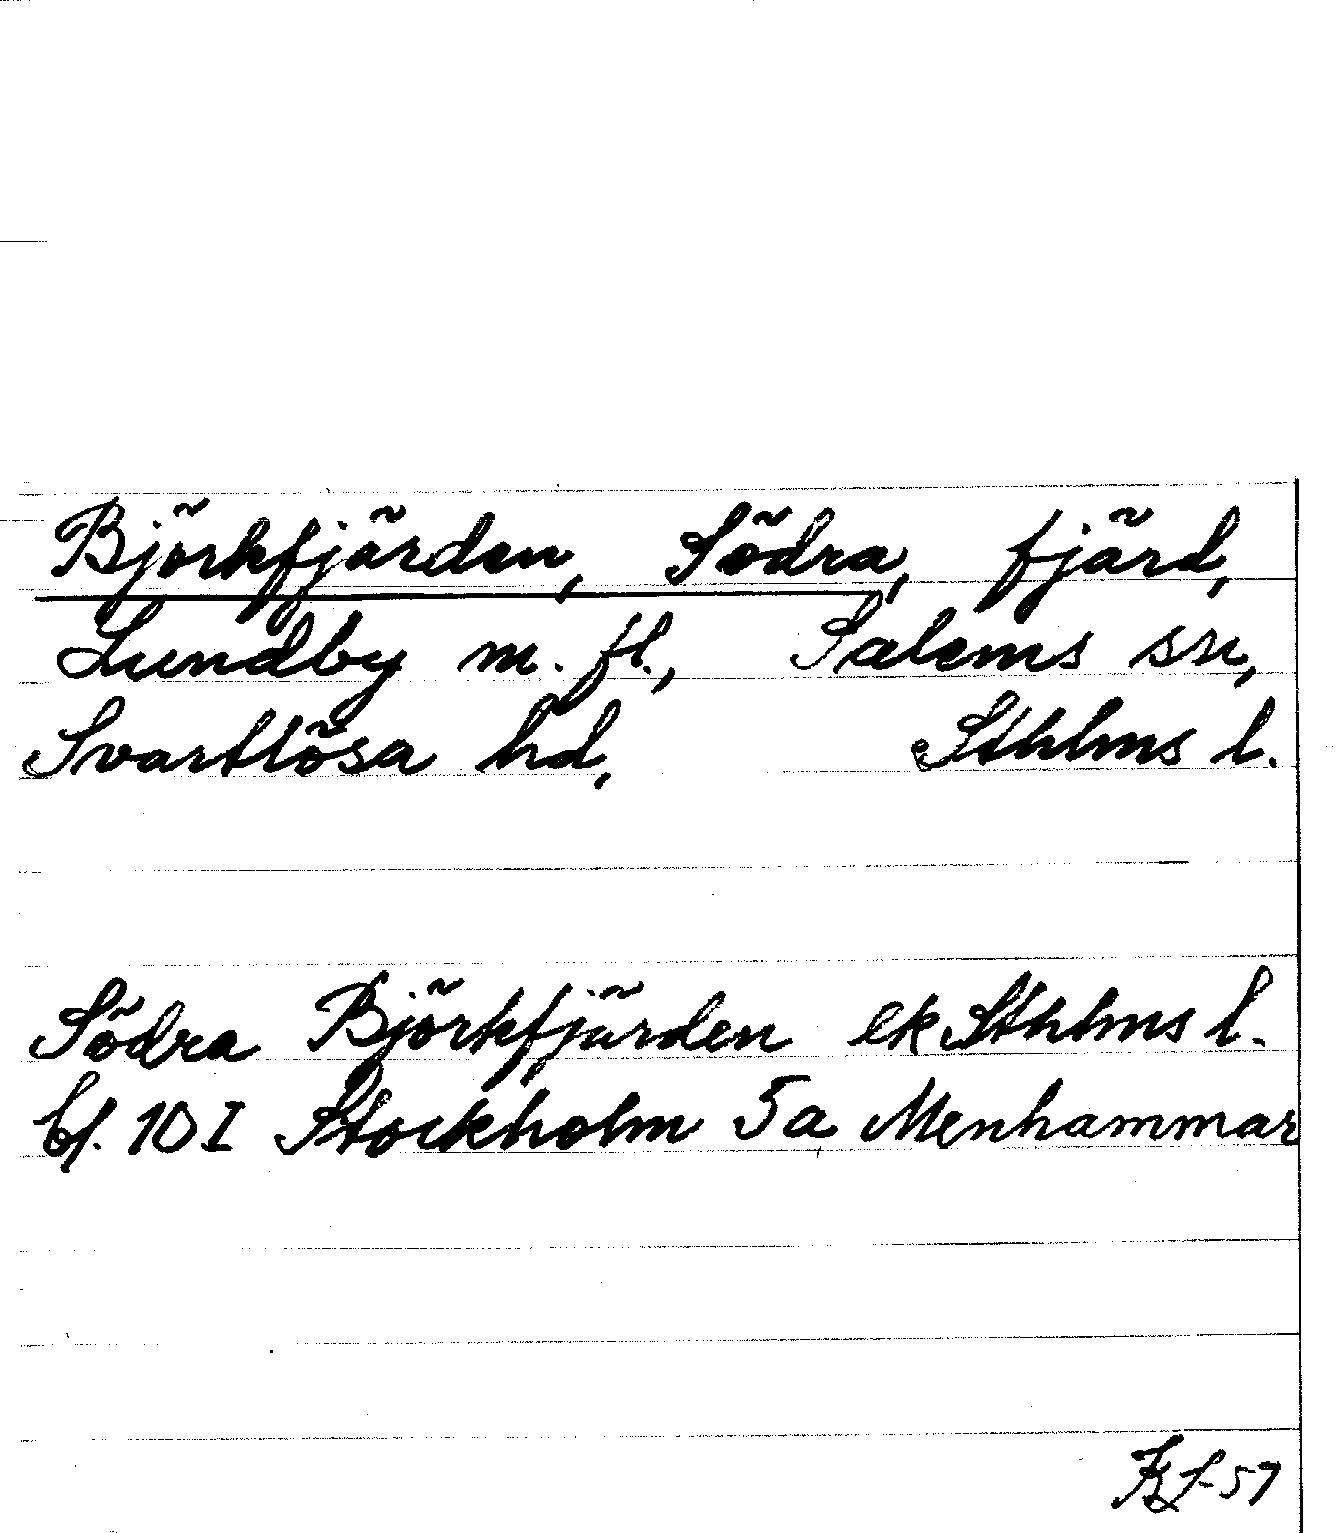 Björkfjärden, Södra, fjärd,
Lundby m. fl., Salems sn,
Svartlösa hd, Sthlms l.
Södra Björkfjärden ek Sthlms l.
bl. 10 I Stockholm 5a Menhammar
57